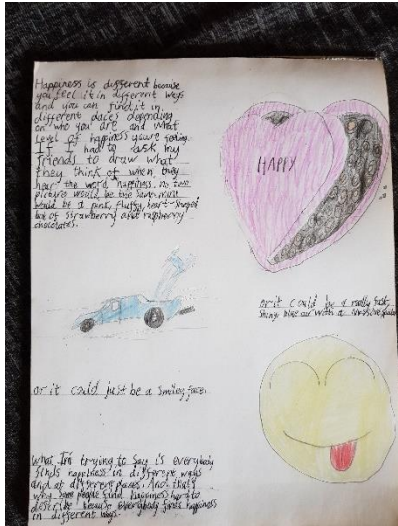 Happiness is different because
you feel it in different ways
and you can find it in
different places depending
on who you are and what
level of happiness you're feeling.
If I had to ask my
friends to draw what
they think of when they
hear the word happiness, no two
picture would be the same. mine
would be a pink, fluffy, heart-shaped
box of strawberry and raspberry
chocolates.
HAPPY
or it could be a really fast,
shiny blue car with a massive
or it could just be a smiley face.
What I'm trying to say is everybody
finds happiness in different ways
and at different paces. And that's
why some people find happiness hard to
describe because everybody finds happiness
in different ways.